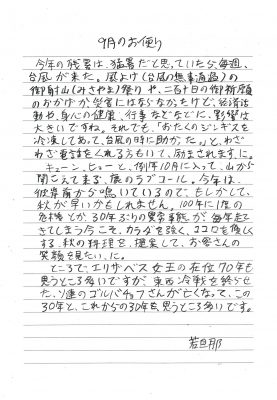 9月のお便り
今年の残暑は、猛暑だと思っていたら毎週、
台風が来た。風よけ(台風の無事通過)の
御射山(みさやま)祭りや、二百十日の御祈願
のおかげか災害にはならなかったけど、経済活
動や身心の健康、行事などなどに、影響は
大きいですね。それでも、「おたくのジンギスを
冷凍してあって、台風の時に助かった。」と、わざ
わざ電話をくれる方もいて、励まされます、に。
キューン、ヒューと、例年10月に入って、山から
聞こえてくる、鹿のラブコール。今年は、
彼岸前から鳴いているので、もしかして、
秋が早いかもしれません。100年に1度の
危機とか、30年ぶりの異常事態が毎年起き
てしまう今こそ、カラダを強く、ココロを優しく
する、秋の料理を提案して、お客さんの
笑顔を見たい、に。
ところで、エリザベス女王の在位70年も
思うところ多いですが、東西冷戦を終らせ
た、ソ連のゴルバチョフさんが亡くなって、この
30年と、これからの30年を思うところ多いです。
若旦那